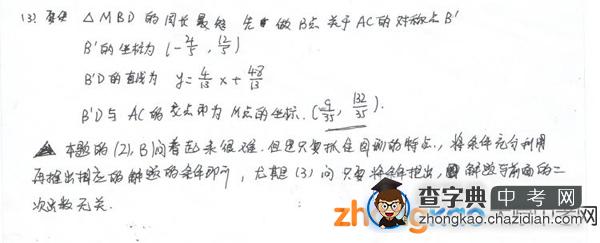 (3) 要使 △MBD 的周长最短 先做 B点 关于 AC 的对称点 B'
B' 的坐标为 (-4/5, 12/5)
B'D 的直线为 y = 4/13 x + 48/13
B'D 与 AC 的交点即为 M点的坐标. (9/35, 132/35).
本题的 (2), (3) 问看起来很难. 但是只要抓住的特点., 将条件充分利用
再推出相应的解题的条件即可, 尤其 (3) 问 只要将条件推出, 解题与前面的二
次函数无关.
查字典 中考网
zhongkao.chazidian.com